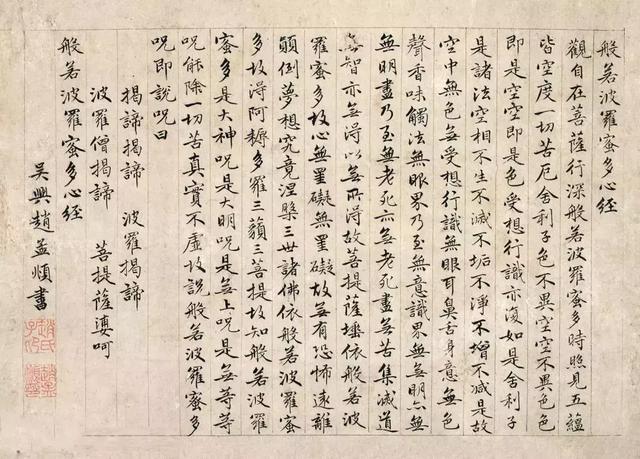 般若波羅蜜多心經
觀自在菩薩行深般若波羅蜜多時照見五蘊
皆空度一切苦厄舍利子色不異空空不異色色
即是空空即是色受想行識亦復如是舍利子
是諸法空相不生不滅不垢不淨不增不減是故
空中無色無受想行識無眼耳鼻舌身意無色
聲香味觸法無眼界乃至無意識界無無明亦無
無明盡乃至無老死亦無老死盡無苦集滅道
無智亦無得以無所得故菩提薩埵依般若波
羅蜜多故心無罣礙無罣礙故無有恐怖遠離
顛倒夢想究竟涅槃三世諸佛依般若波羅蜜
多故得阿耨多羅三藐三菩提故知般若波羅
蜜多是大神呪是大明呪是無上呪是無等等
呪能除一切苦真實不虛故說般若波羅蜜多
呪即說呪曰
揭諦揭諦 波羅揭諦
波羅僧揭諦 菩提薩婆呵
般若波羅蜜多心經
吳興趙孟頫書
趙氏子昂